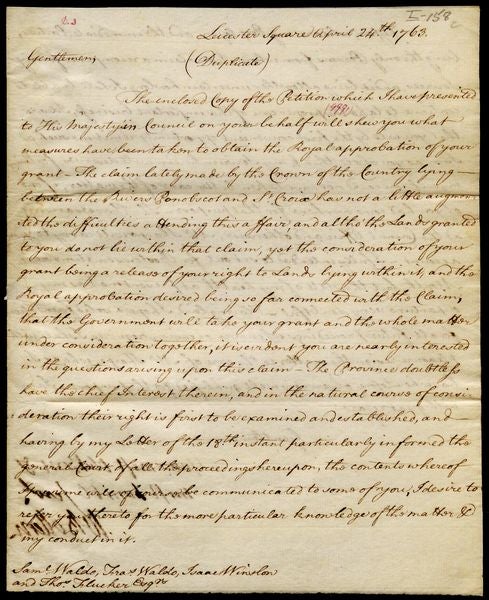 I-158
Leicester Square April 24.th 1763.
Gentlemen,
(Duplicate)
The enclosed Copy of the Petition which I have presented
to His Majesty in Council on your behalf will shew you what
measures have been taken to obtain the Royal approbation of your
grant - The claim lately made by the Crown of the Country lying
between the Rivers Penobscot and St Croix has not a little augmen
ted the difficulties attending this affair, and altho the Lands granted
to you do not lie within that claim, yet the consideration of your
grant being a release of your right to Lands lying within it, and the
Royal approbation desired being so far connected with the Claim,
that the Government will take your grant and the whole matter
under consideration together, it is evident you are nearly interested
in the questions arising upon this claim - The Province doubtless
have the chief Interest therein, and in the natural course of consi
deration their right is first to be examined and established, and
having by my Letter of the 18th instant particularly informed the
general Court of all the proceedings hereupon, the contents whereof
I presume will of course be communicated to some of you, I desire to
refer you thereto for the more particular knowledge of the matter &
my conduct in it.
Saml. Waldo, Fras Waldo, Isaac Winslow
and Thos. Flucker Esqrs